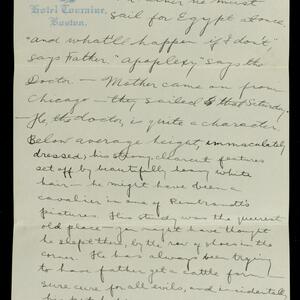 Hotel Touraine,
Boston.
he must
sail for Egypt at once,
"and what'll happen if I don't,"
says Father. "Apoplexy" says the
Doctor — Mother came on from
Chicago — they sailed that Saturday.
— He, the doctor, is quite a character.
Below average height, immaculately
dressed, his strong, clearcut features
set off by beautifully heavy white
hair — he might have been a
cavalier in one of Rembrandt's
pictures. His study was the queerest
old place — you might have thought
he slept there, by the row of shoes in the
corner. He has always been trying
to have father get a cattle farm —
sure cure for all evils, and incidentally